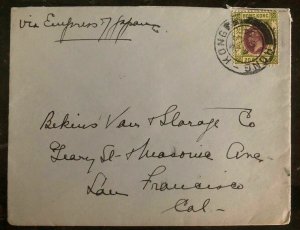 via Empress of Japan
HONG KONG
KONG
Bekins Van & Storage Co
Geary St & Masonic Ave.
San Francisco
Cal.